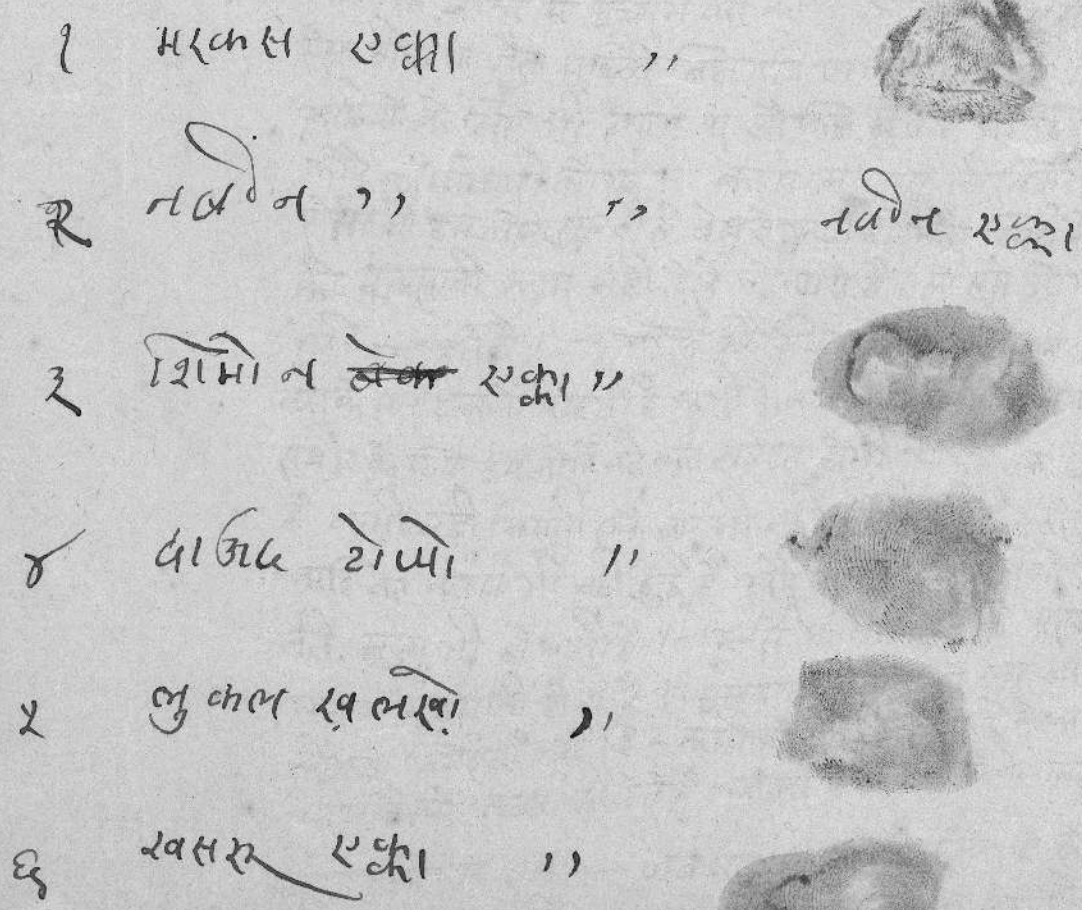 १ मरकस एक्का ,,
२ नवीन ,, ,, नवीन एक्का
३ शिमोन एक्का ,,
४ टोप्पो ,,
५ लुकस ख़लख़ो ,,
६ खसरु एक्का ,,